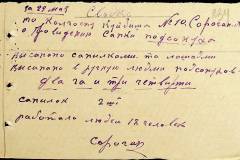 за 29 мая Сводка
по колхозу Куйбиша №14 (Сорочан
о проведении сапки подсолнуха
Висапано сапилками та лошадми
Висапано в ручную людми подсолнух
два га и три четверти
сапилок 2 ші
работало людей 18 человек
Сорочан